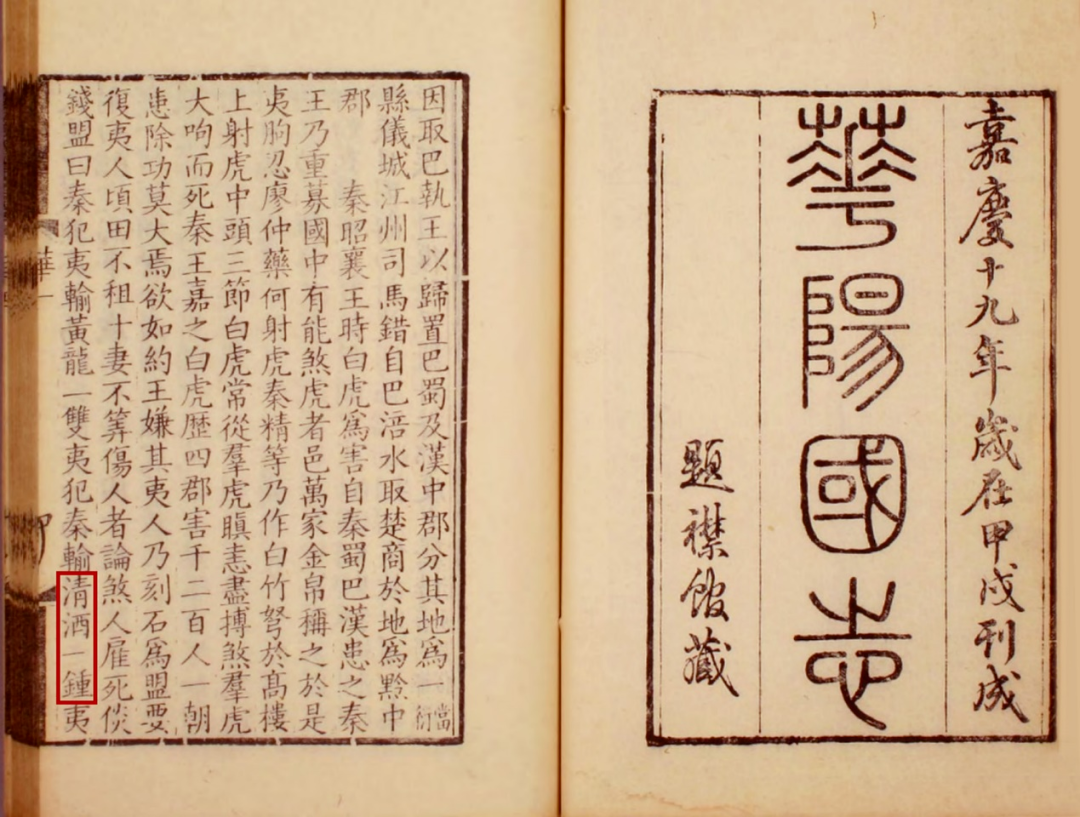 嘉慶十九年歲在甲戌刊成
華陽國志
題襟館藏
因取巴執王以歸置巴蜀及漢中郡分其地爲一當衍
縣儀城江州司馬錯自巴涪水取楚商於地爲黔中
郡　秦昭襄王時白虎爲害自秦蜀巴漢患之秦
王乃重募國中有能煞虎者邑萬家金帛稱之於是
夷朐忍廖仲藥何射虎秦精等乃作白竹弩於髙樓
上射虎中頭三節白虎常從羣虎瞋恚盡搏煞羣虎
大呴而死秦王嘉之白虎歴四郡害千二百人一朝
患除功莫大焉欲如約王嫌其夷人乃刻石爲盟要
復夷人頃田不租十妻不筭傷人者論煞人雇死倓
錢盟曰秦犯夷輸黃龍一雙夷犯秦輸清酒一鍾夷
華一